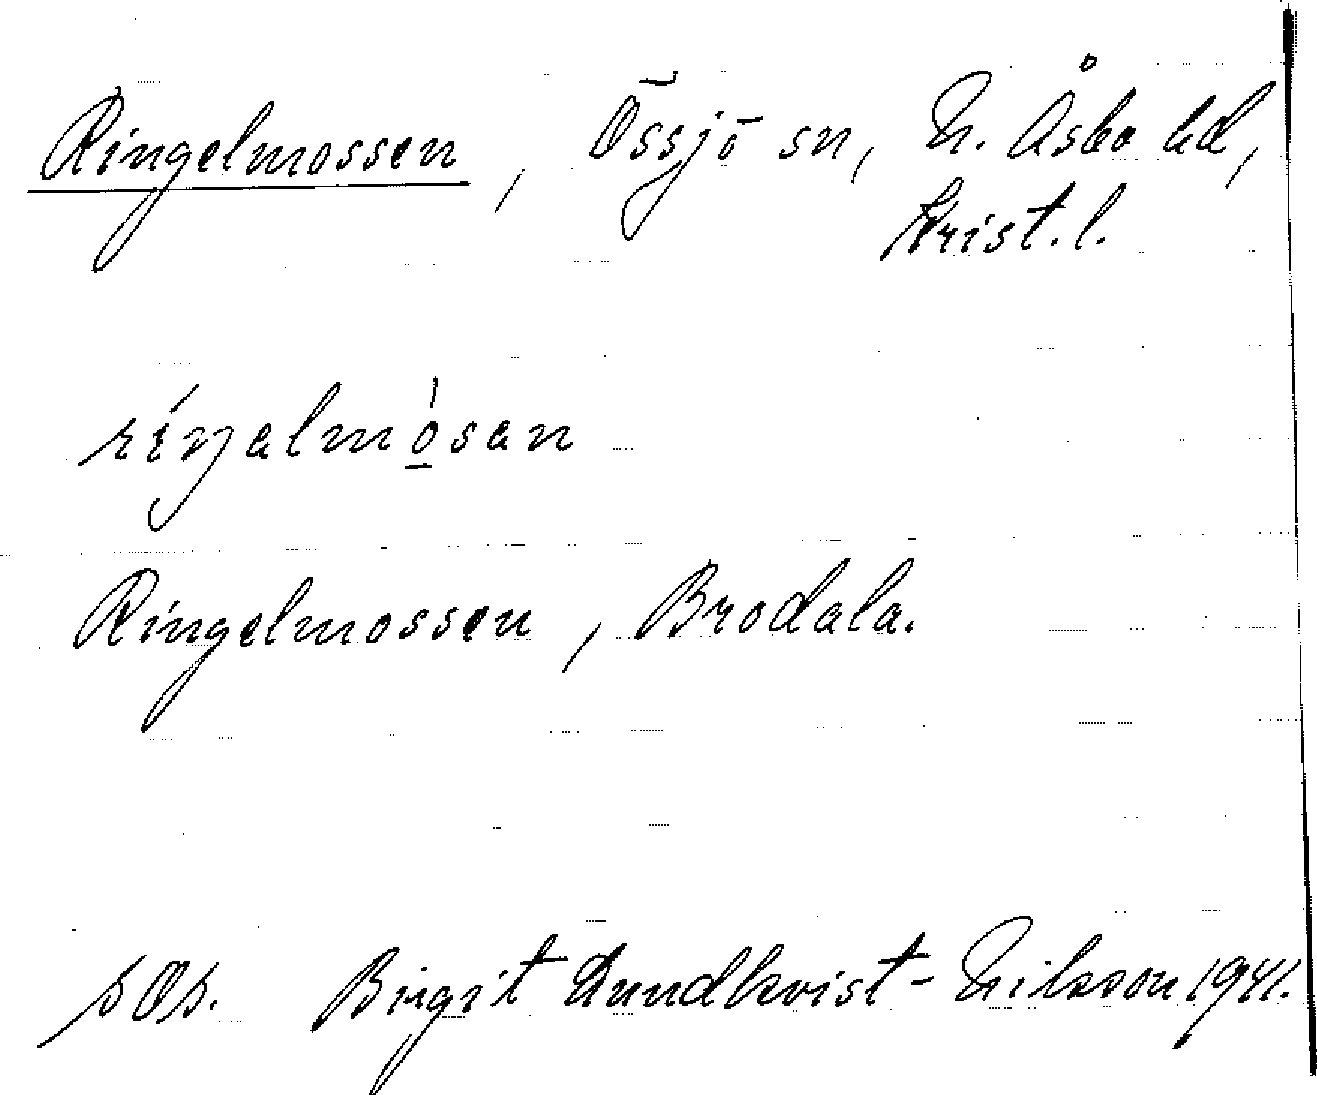 Ringelmossen, Össjö sn, N. Åsbo hd,
Krist. l.
ríŋəlmo̱̍sən
Ringelmossen, Brodala.
Birgit Lundkvist-Nilsson 1941.